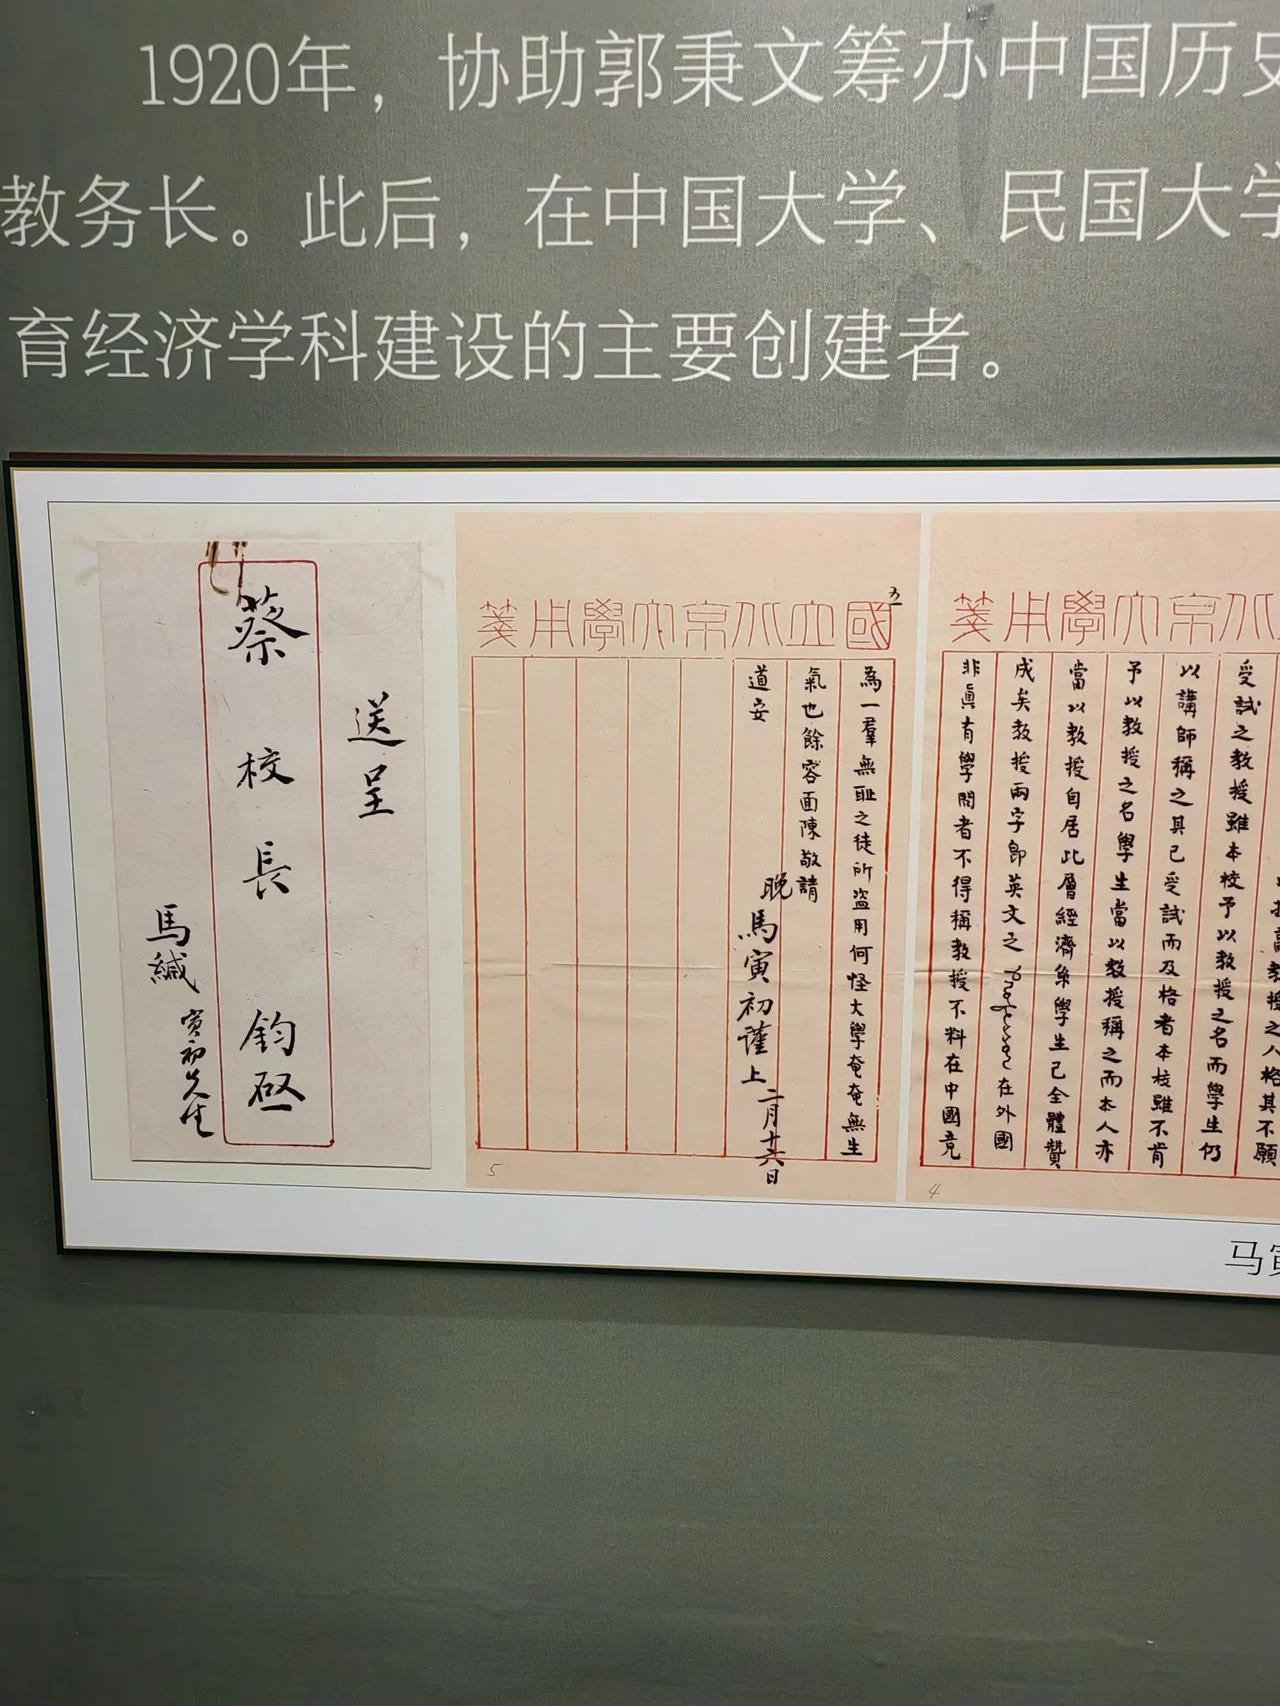 1920年，协助郭秉文筹办中国历史
教务长。此后，在中国大学、民国大学
育经济学科建设的主要创建者。
京大學用箋
教授之人格其不願
受試之教授雖本校予以教授之名而學生仍
以講師稱之其已受試而及格者本校雖不肯
予以教授之名學生當以教授稱之而本人亦
當以教授自居此層經濟系學生已全體贊
成矣教授兩字即英文之professor在外國
非眞有學問者不得稱教授不料在中國竟
4
國立北京大學用箋
五
為一羣無恥之徒所盜用何怪大學奄奄無生
氣也餘容面陳敬請
道安
晚馬寅初謹上二月十六日
5
送呈
蔡校長鈞啟
馬緘
寅初先生
马